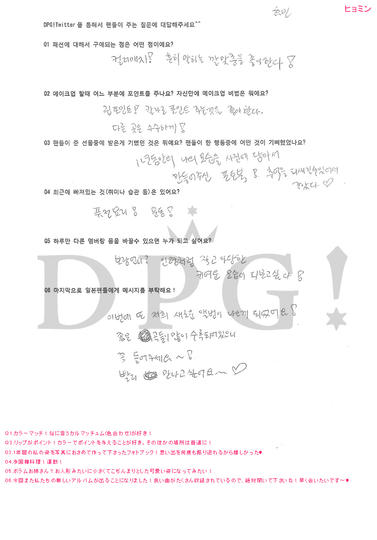 효민
ヒョミン
DPG!Twitter을 통해서 팬들이 주는 질문에 대답해주세요^^
Q1 패션에 대해서 구애되는 점은 어떤 점이에요?
컬러매치! 흔히 말하는 깔맞춤을 좋아한다!
Q2 메이크업 할때 어느 부분에 포인트를 주나요? 자신만에 메이크업 비법은 뭐에요?
립포인트! 칼라로 포인트 주는것을 좋아한다.
다른 곳은 수수하게!
Q3 팬들이 준 선물중에 받은게 기뻤던 것은 뭐에요? 팬들이 한 행동중에 어떤 것이 기뻐했었나요?
1년동안의 나의 모습을 사진에 담아서
만들어주신 포토북! 추억을
Q4 최근에 빠져있는 것(취미나 습관 등)은 있어요?
퓨전요리! 운동!
Q5 하루만 다른 멤버랑 몸을 바꿀수 있으면 누가 되고 싶어요?
보람언니? 인형처럼 작고 아담한
귀여운 모습이 되보고싶다!
Q6 마지막으로 일본팬들에게 메시지를 부탁해요!
DPG!
이번에 또 저희 새로운 앨범이 나오게 되었어요!
좋은 곡들이 많이 수록되어있으니
꼭 들어주세요~!
빨리 만나고싶어요~♡
Q1.カラーマッチ!俗に言うカルマッチュム(色合わせ)が好き!
Q2.リップがポイント!カラーでポイントを与えることが好き。そのほかの場所は普通に!
Q3.1年間の私の姿を写真におさめて作って下さったフォトブック!思い出を何度も振り返れるから嬉しかった♥
Q4.多国籍料理!運動!
Q5.ボラムお姉さん?お人形みたいに小さくてこぢんまりとした可愛い姿になってみたい!
Q6.今回また私たちの新しいアルバムが出ることになりました!良い曲がたくさん収録されているので、絶対聞いて下さいね!早く会いたいです~♥